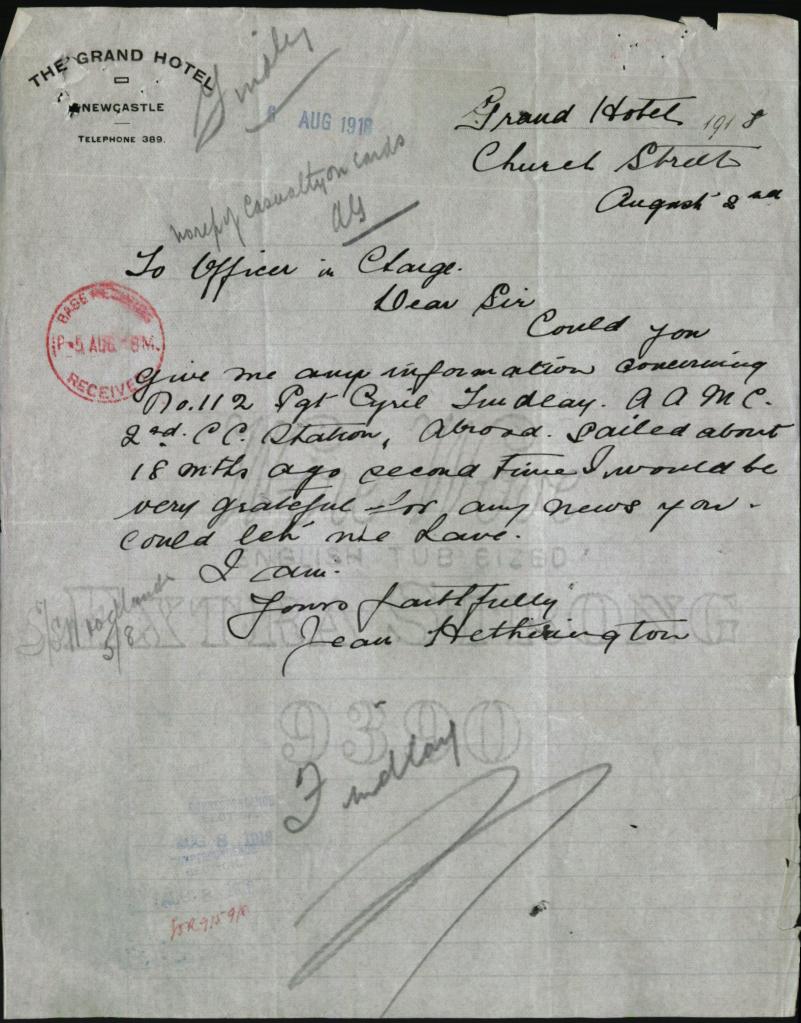 THE GRAND HOTEL
NEWCASTLE
TELEPHONE 389.
Findlay
AUG 1918
Grand Hotel 1918
Church Street
August 2nd
no rept of Casualty on cards
To Officer in Charge.
Dear Sir
Could you
give me any information concerning
No. 112 Pgt Cyril Findlay. A A M C.
2nd. C C. Station, Abroad. Sailed about
18 mths ago second time I would be
very grateful for any news you.
could let me have.
I am.
Yours faithfully
Jean Hetherington
BASE RECORDS
5 AUG
RECEIVED
ENGLISH TUB SIZED
EXTRA STRONG
9390
5/8
Findlay